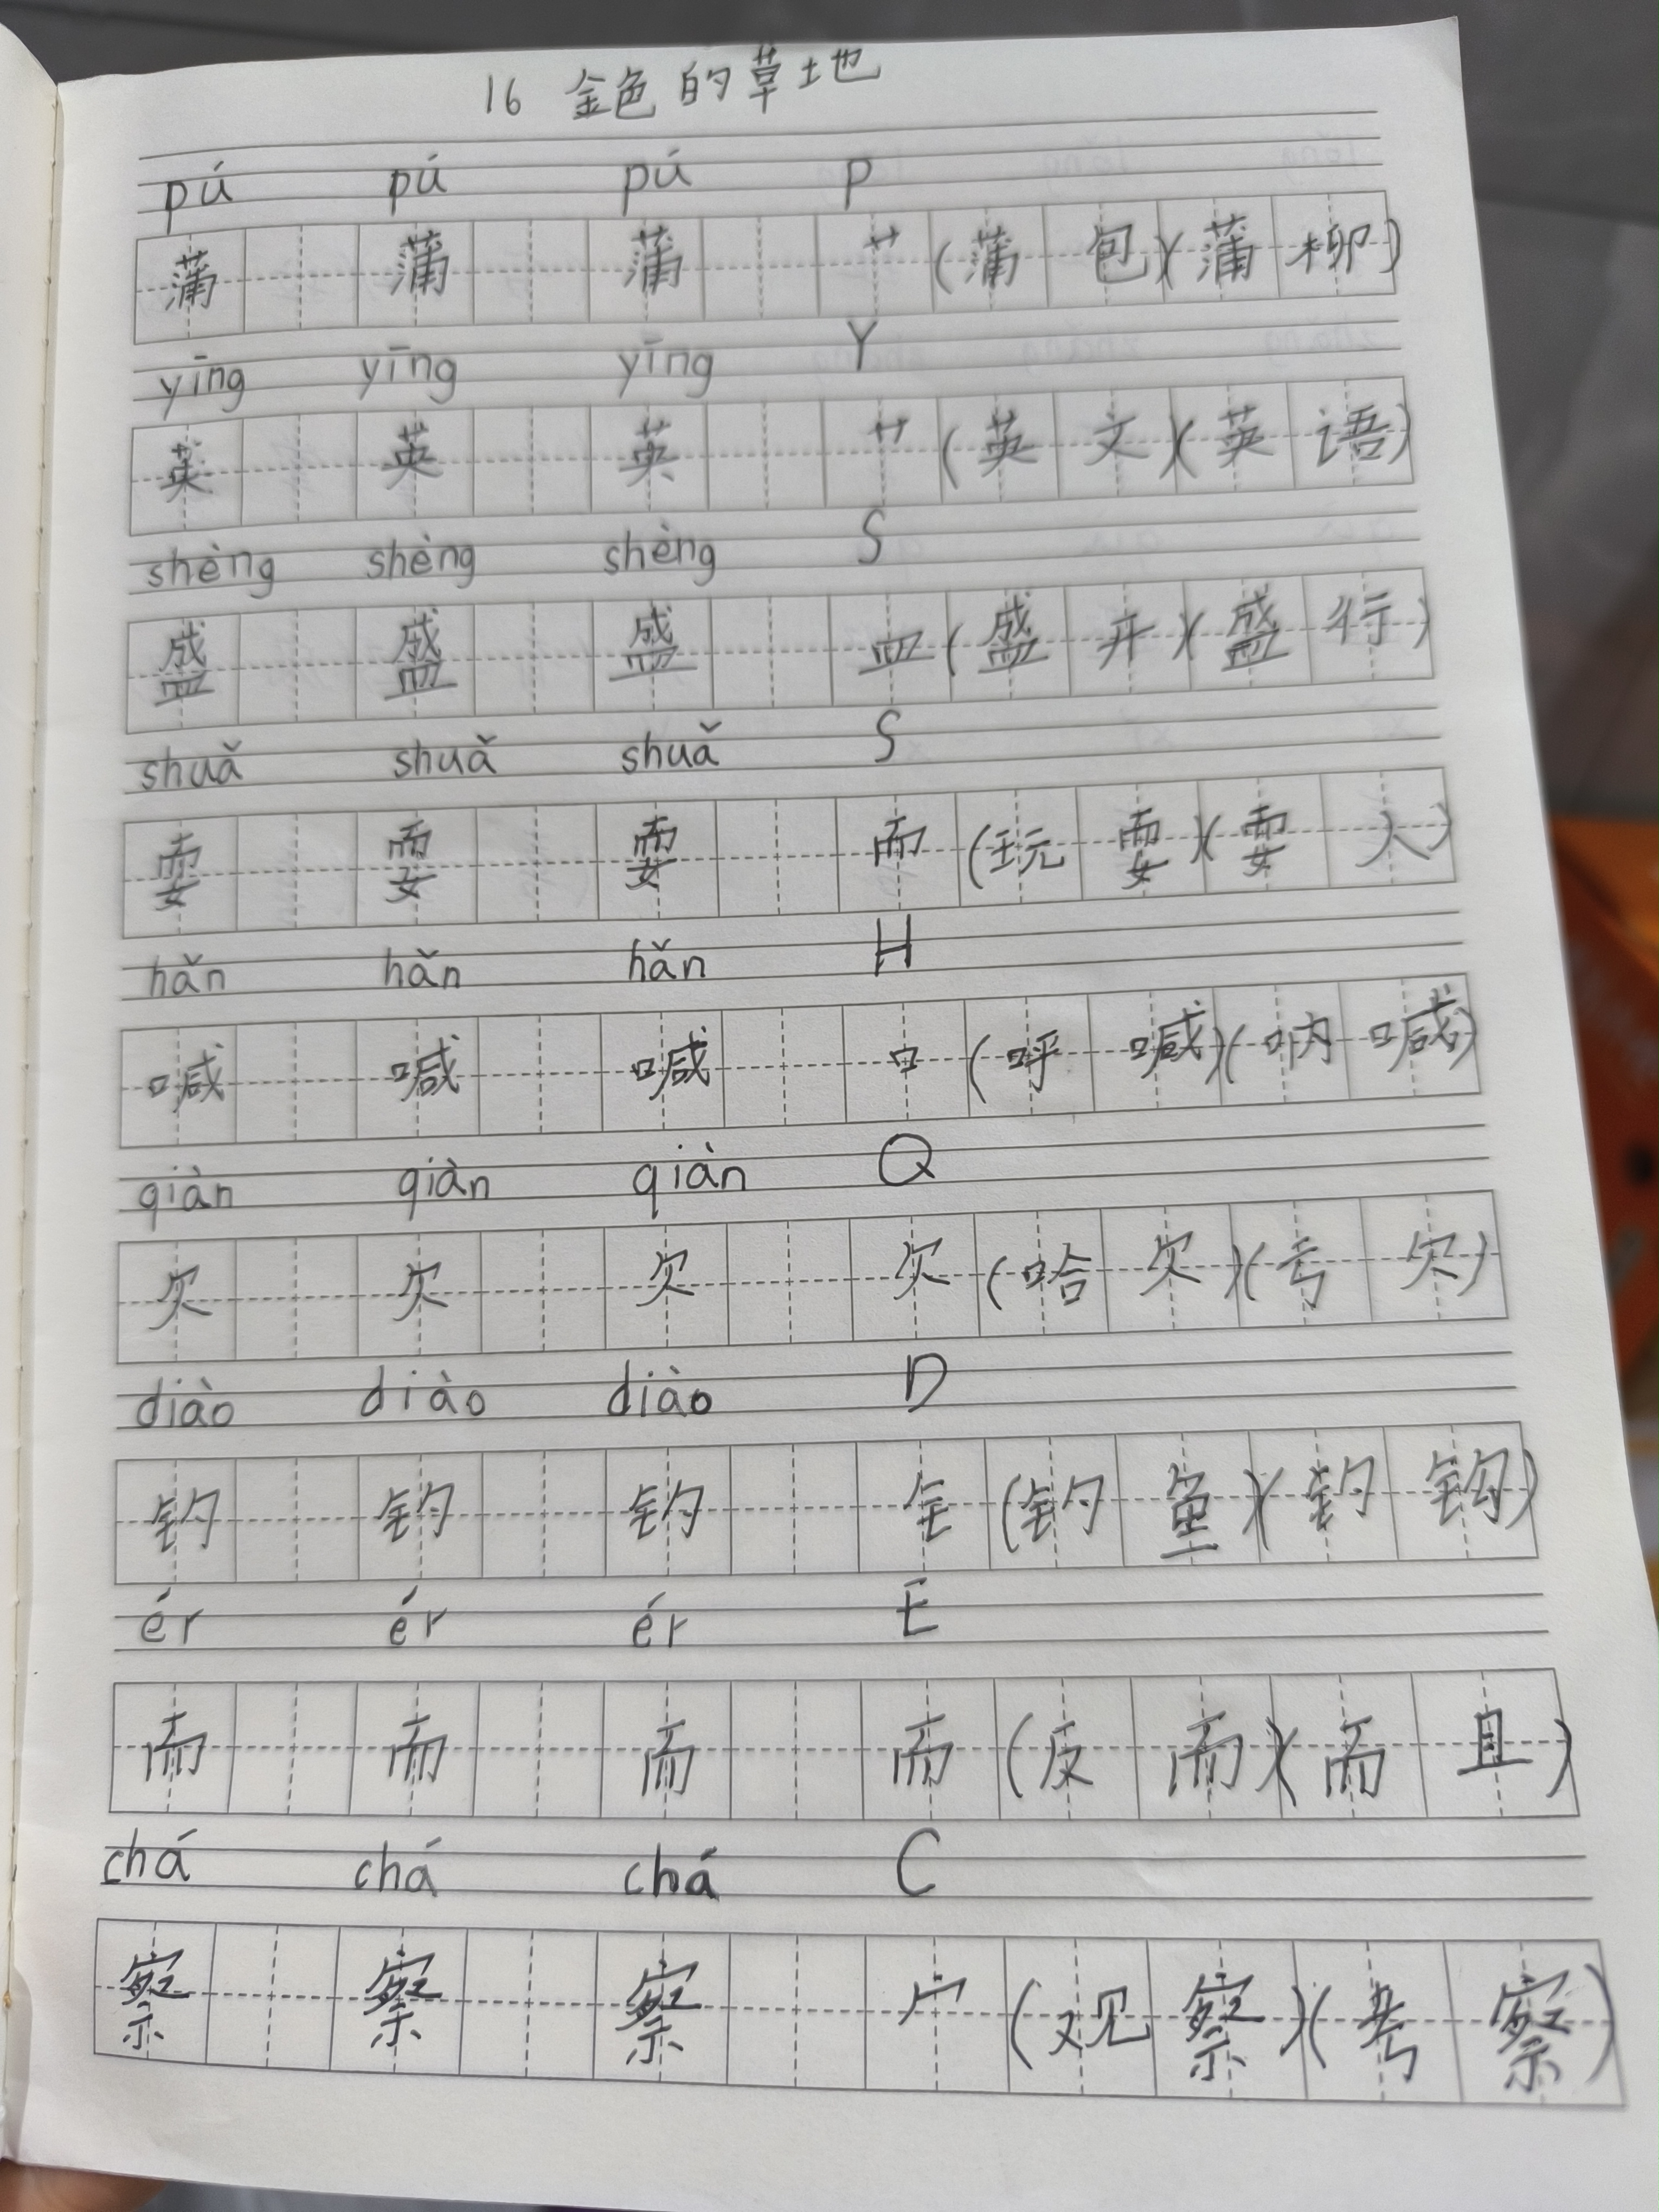 16 金色的草地
pú pú pú P
蒲 蒲 蒲 艹 (蒲包)(蒲柳)
yīng yīng yīng Y
英 英 英 艹 (英文)(英语)
shèng shèng shèng S
盛 盛 盛 皿 (盛开)(盛行)
shuǎ shuǎ shuǎ S
耍 耍 耍 而 (玩耍)(耍人)
hǎn hǎn hǎn H
喊 喊 喊 口 (呼喊)(呐喊)
qiàn qiàn qiàn Q
欠 欠 欠 欠 (哈欠)(亏欠)
diào diào diào D
钓 钓 钓 钅 (钓鱼)(钓钩)
ér ér ér E
而 而 而 而 (反而)(而且)
chá chá chá C
察 察 察 宀 (观察)(考察)